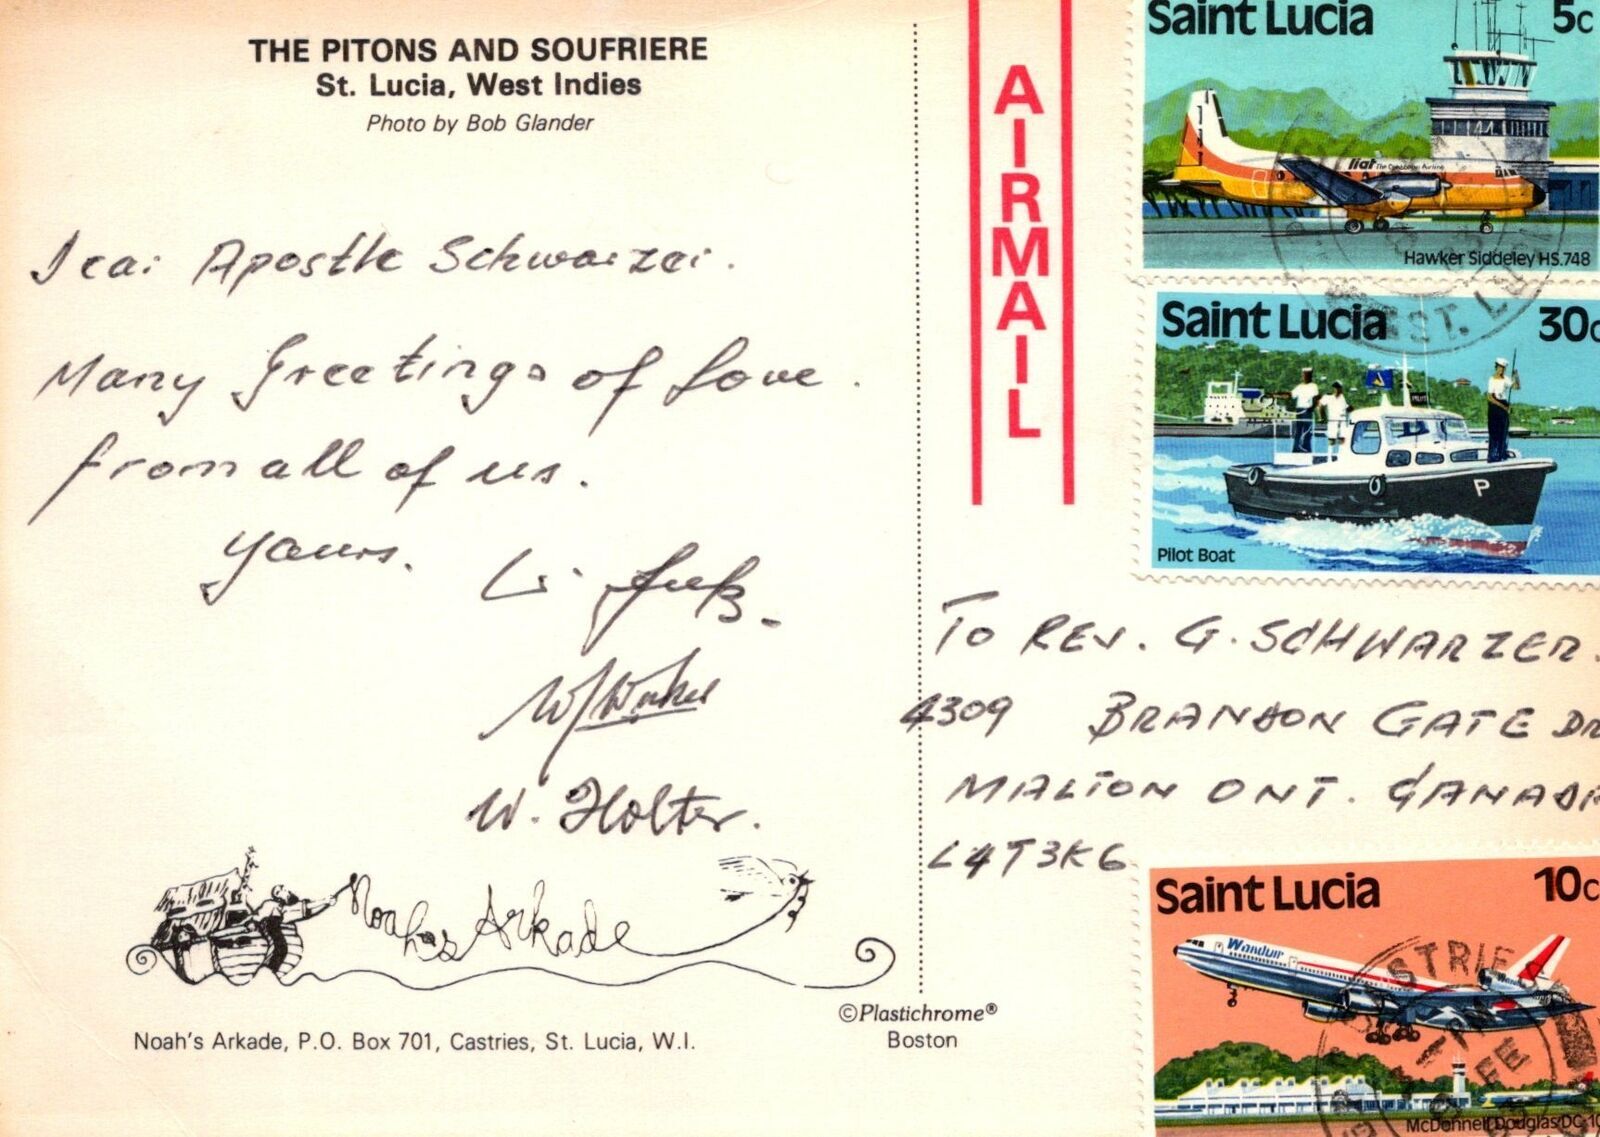 THE PITONS AND SOUFRIERE
St. Lucia, West Indies
Photo by Bob Glander
Dear Apostle Schwarzer.
Many Greetings of Love.
from all of us.
Yours.
W. Holter.
Noah's Arkade
Noah's Arkade, P.O. Box 701, Castries, St. Lucia, W.I.
©Plastichrome®
Boston
AIRMAIL
Saint Lucia 5c
liat The Caribbean Airline
Hawker Siddeley HS.748
EST. LU
Saint Lucia 30c
PILOT
P
Pilot Boat
TO REV. G. SCHWARZER.
4309 BRANDON GATE DR
MALTON ONT. CANADA
L4T3K6
Saint Lucia 10c
Wardair
STRIE
PM
FE
McDonnell Douglas DC-10